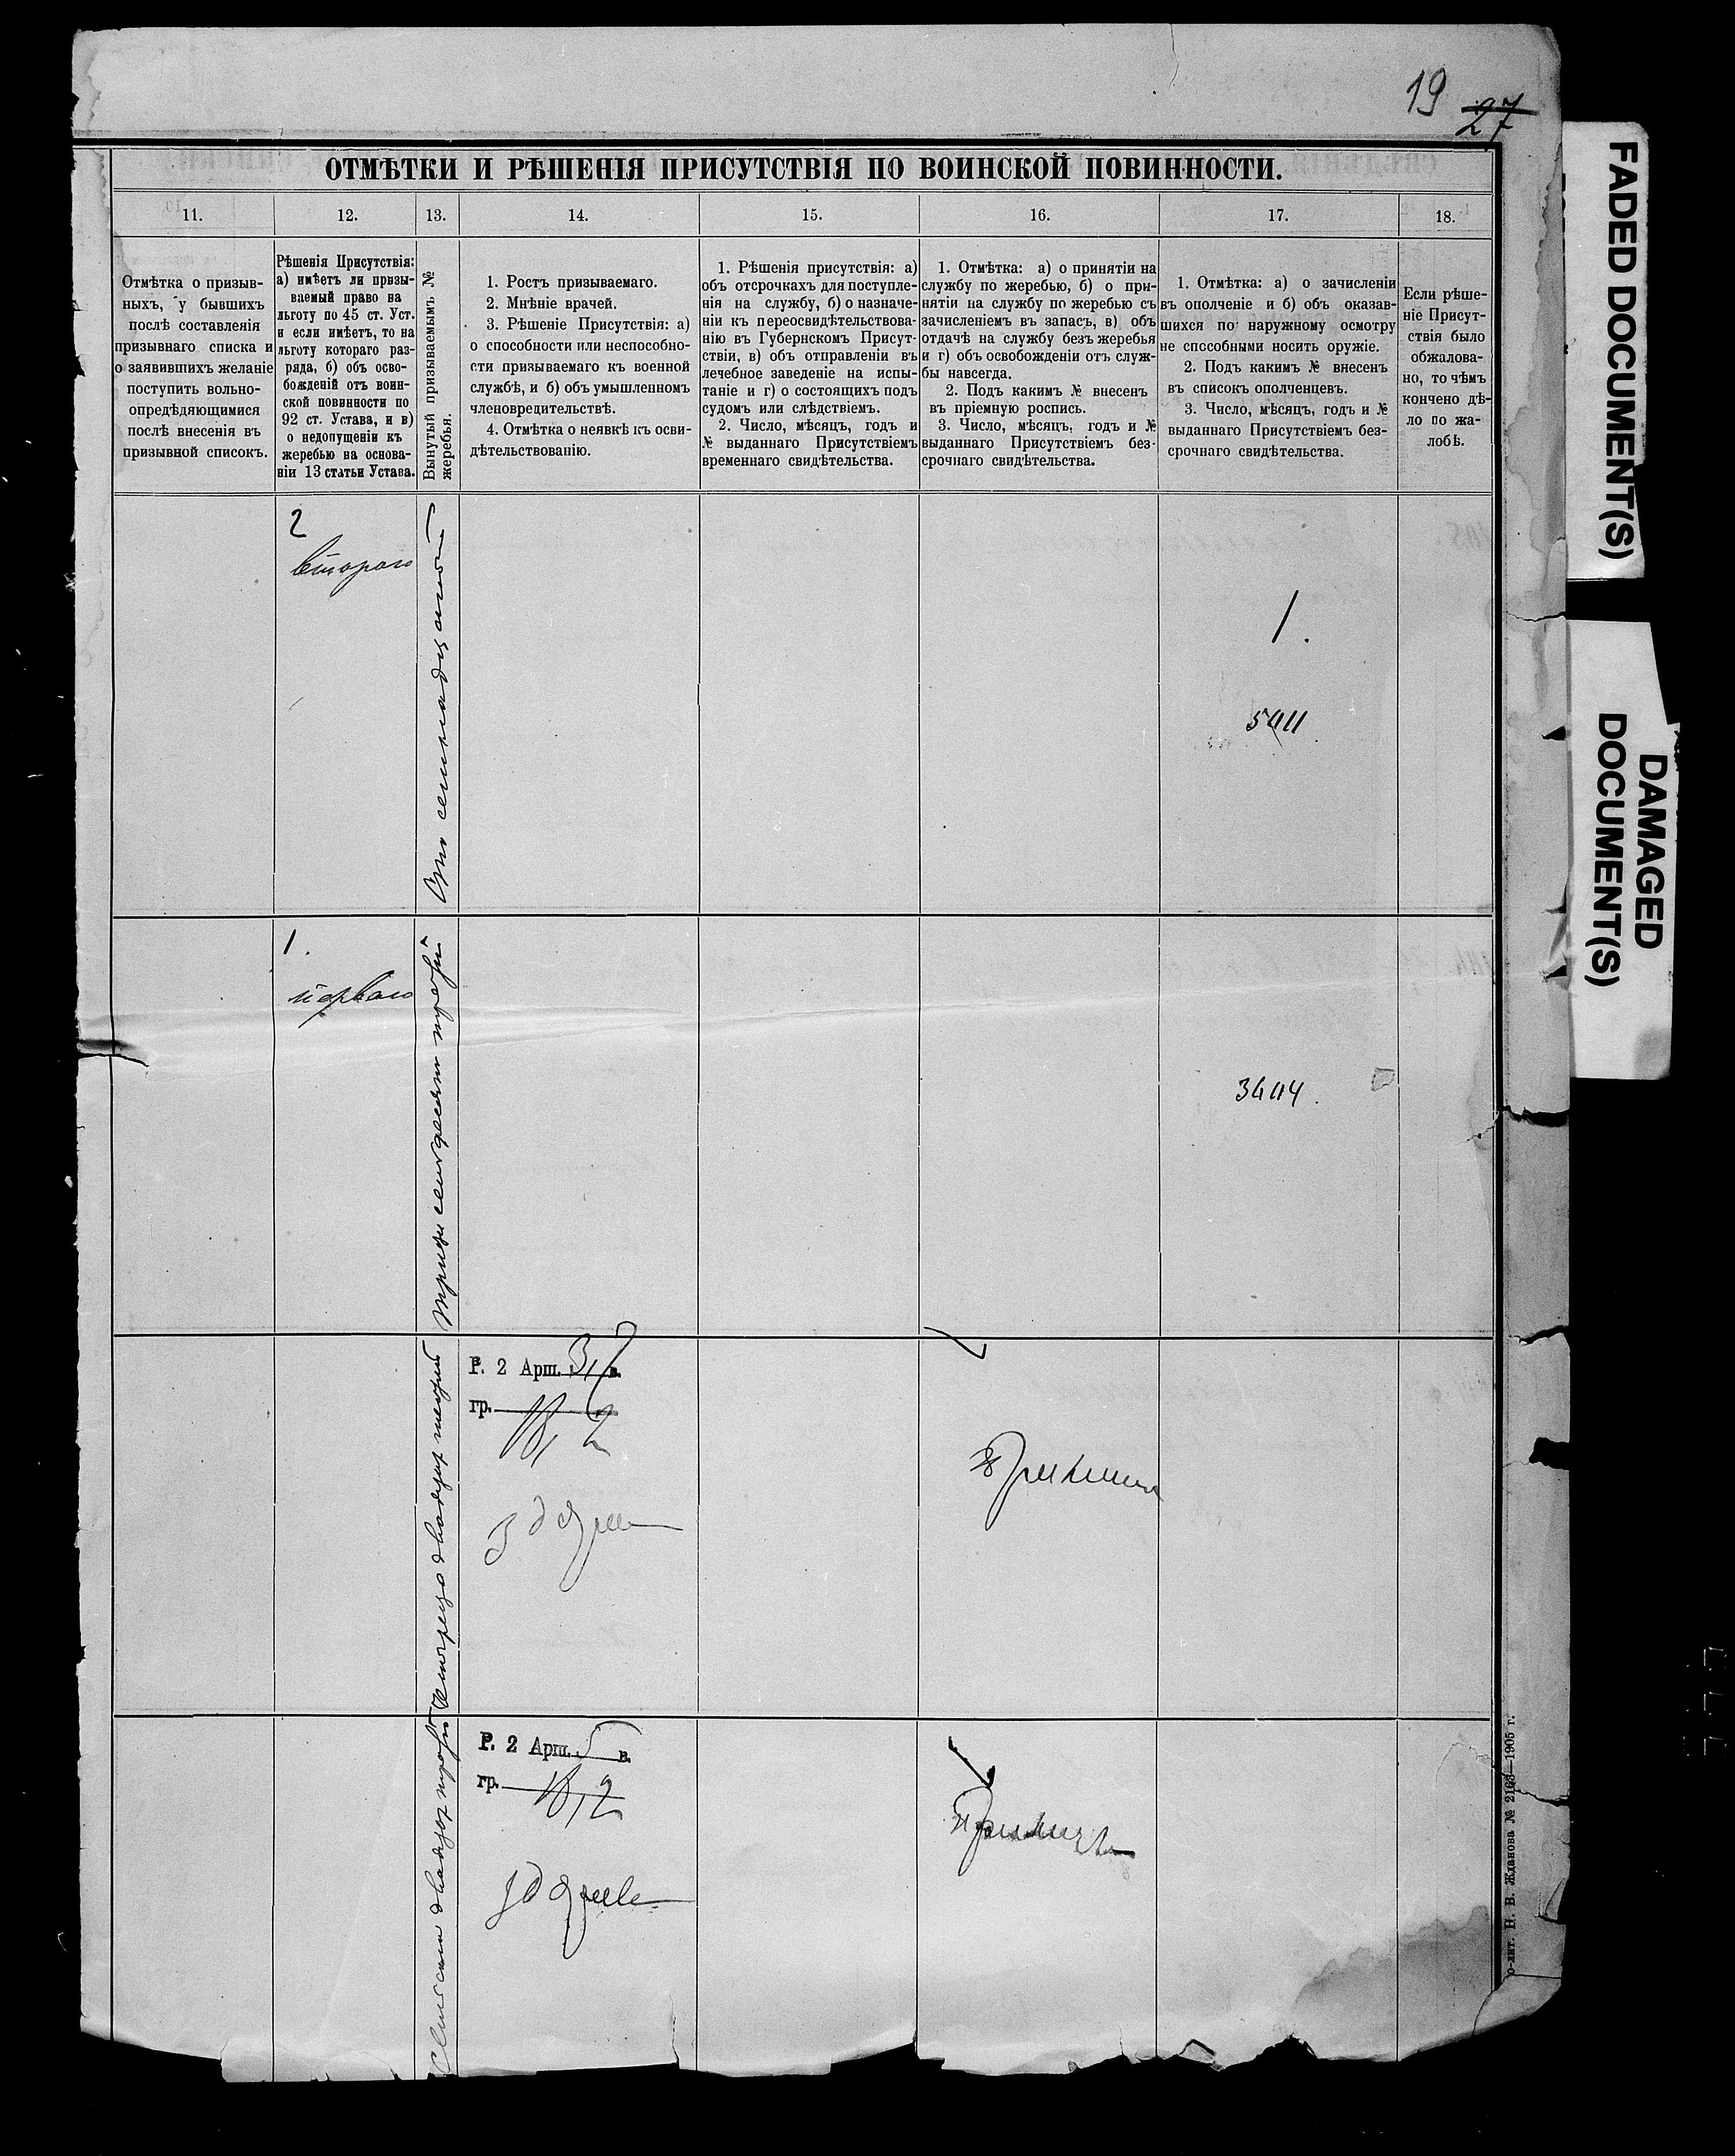 19 27
ОТМѢТКИ И РѢШЕНІЯ ПРИСУТСТВІЯ ПО ВОИНСКОЙ ПОВИННОСТИ.
11.
12.
13.
14.
15.
16.
17.
18.
Отмѣтка о призыв-
ныхъ, у бывшихъ
послѣ составленія
призывнаго списка и
о заявившихъ желаніе
поступить вольно-
опредѣдяющимися
послѣ внесенія въ
призывной списокъ.
Рѣшенія Присутствія:
а) имѣетъ ли призы-
ваемый право на
льготу по 45 ст. Уст.
и если имѣетъ, то на
льготу котораго раз-
ряда, б) объ осво-
божденій отъ воин-
ской повинности по
92 ст. Устава, и в)
о недопущеніи къ
жеребью на основа-
ніи 13 статьи Устава.
Вынутый призываемымъ №
жеребья.
1. Ростъ призываемаго.
2. Мнѣніе врачей.
3. Рѣшеніе Присутствія: а)
о способности или неспособно-
сти призываемаго къ военной
службѣ, и б) объ умышленномъ
членовредительствѣ.
4. Отмѣтка о неявкѣ къ осви-
дѣтельствованію.
1. Рѣшенія присутствія: а)
объ отсрочкахъ для поступле-
нія на службу, б) о назначе-
ніи къ переосвидѣтельствова-
нію въ Губернскомъ Присут-
ствіи, в) объ отправленіи въ
лечебное заведеніе на испы-
таніе и г) о состоящихъ подъ
судомъ или слѣдствіемъ.
2. Число, мѣсяцъ, годъ и
№ выданнаго Присутствіемъ
временнаго свидѣтельства.
1. Отмѣтка: а) о принятіи на
службу по жеребью, б) о при-
нятіи на службу по жеребью съ
зачисленіемъ въ запасъ, в) объ
отдачѣ на службу безъ жеребья
и г) объ освобожденіи отъ служ-
бы навсегда.
2. Подъ какимъ № внесенъ
въ пріемную роспись.
3. Число, мѣсяцъ, годъ и №
выданнаго Присутствіемъ без-
срочнаго свидѣтельства.
1. Отмѣтка: а) о зачисленіи
въ ополченіе и б) объ оказав-
шихся по наружному осмотру
не способными носить оружіе.
2. Подъ какимъ № внесенъ
въ списокъ ополченцевъ.
3. Число, мѣсяцъ, годъ и №
выданнаго Присутствіемъ без-
срочнаго свидѣтельства.
Если рѣше-
ніе Присут-
ствія было
обжалова-
но, то чѣмъ
кончено дѣ-
ло по жа-
лобѣ.
2
второго
Сто семнадцатый
1.
1.
перваго
Триста семдесят третій
Р. 2 Арш. в.
гр.
18,2
Принят
Р. 2 Арш. 5 в.
гр.
18,2
Принят
двадцат третій
FADED DOCUMENT(S)
DAMAGED
DOCUMENT(S)
о-лит. Н. В. Жданова № 2163—1905 г.